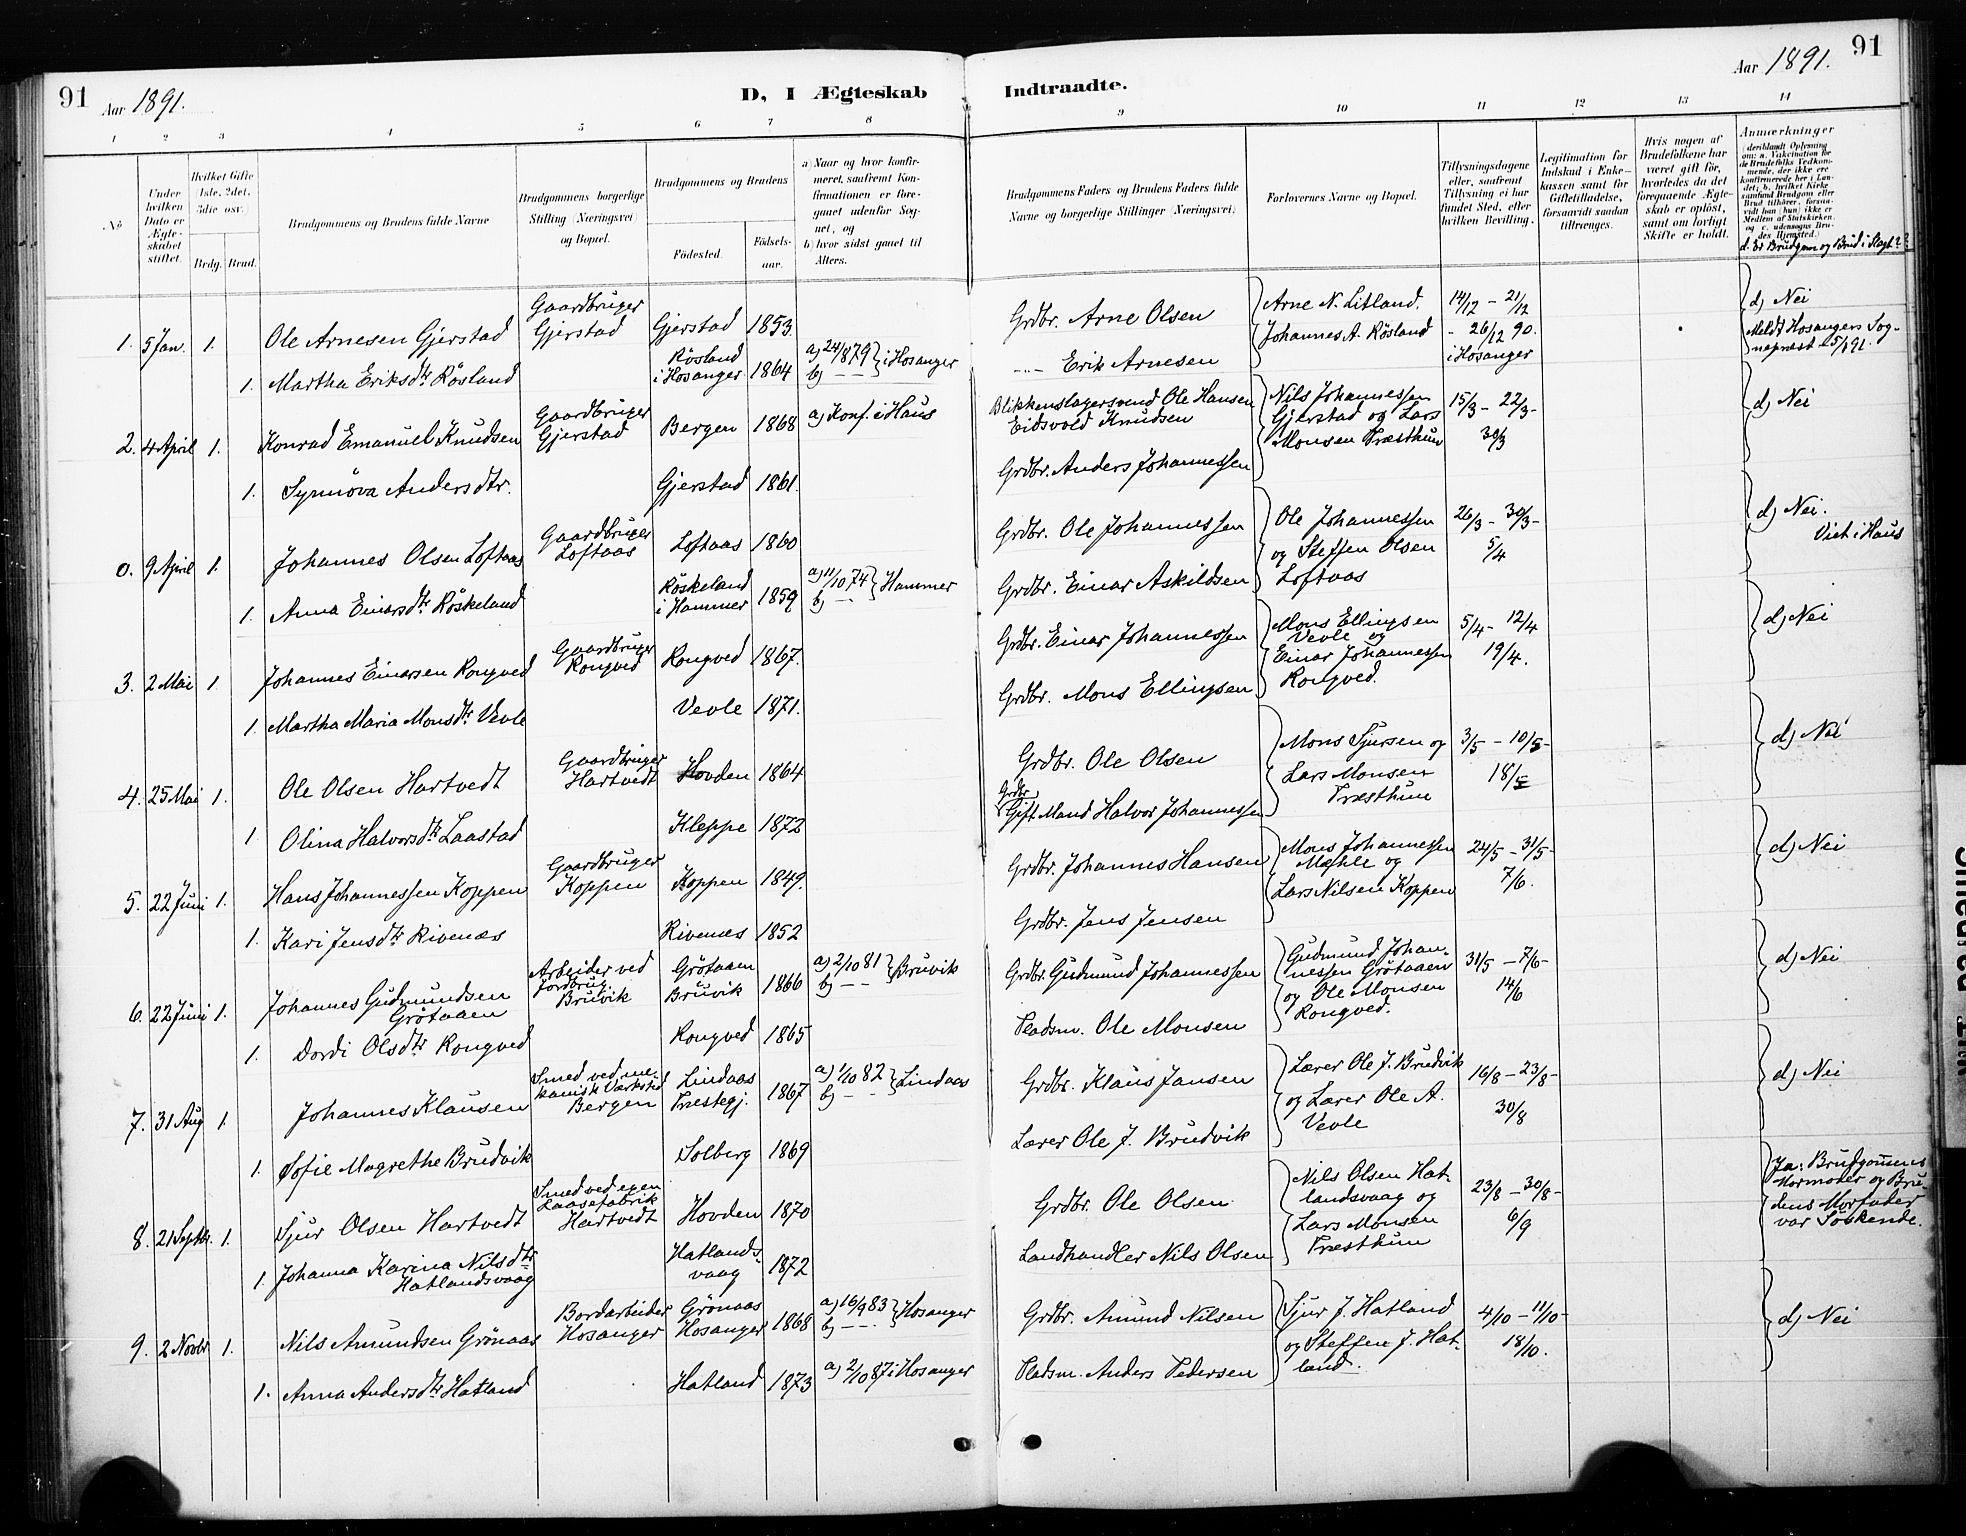 91
Aar 1891.
D, I Ægteskab Indtraadte.
Aar 1891.
91
1 2 3 4 5 6 7 8 9 10 11 12 13 14
No
Under hvilken Dato er Ægteskabet stiftet.
Hvilket Gifte 1ste, 2det, 3die osv.
Brdg. Brud.
Brudgommens og Brudens fulde Navne
Brudgommens borgerlige Stilling (Næringsvei) og Bopæl.
Brudgommens og Brudens
Fødested.
Fødselsaar.
a) Naar og hvor konfirmeret, saafremt Konfirmationen er foregaaet udenfor Sognet, og
b) hvor sidst gaaet til Alters.
Brudgommens Faders og Brudens Faders fulde Navne og borgerlige Stillinger (Næringsvei)
Forlovernes Navne og Bopæl.
Tillysningsdagene eller, saafremt Tillysning ei har fundet Sted, efter hvilken Bevilling.
Legitimation for Indskud i Enkekassen samt for Giftetilladelse, forsaavidt saadan tiltrænges.
Hvis nogen af Brudefolkene har været gift før, hvorledes da det foregaaende Ægteskab er opløst, samt om lovligt Skifte er holdt.
Anmærkninger (deriblandt Oplysning om: a. Vakcination for de Brudefolks Vedkommende, der ikke ere konfirmerede her i Landet; b. hvilket Kirkesamfund Brudgom eller Brud tilhører, forsaavidt han (hun) ikke er Medlem af Statskirken, og c. udensogns Brudes Hjemsted.)
d. Er Brudgom og Brud i Slægt?
1. 5 Jan. 1. Ole Arnesen Gjerstad Gaardbruger Gjerstad Gjerstad 1853. Grdbr. Arne Olsen Arne N. Litland. 14/12 - 21/12 d) Nei
1. Martha Eriksdtr Røsland Røsland i Hosanger 1864 a) 24/8 79 b) - - } i Hosanger - - Erik Arnesen Johannes A. Røsland - 26/12 90. i Hosanger Meldt Hosangers Sognepræst 5/1 91.
2. 4 April 1. Konrad Emanuel Knudsen Gaardbruger Gjerstad Bergen 1868 a) Konf. i Haus Blikkenslagersvend Ole Hansen Eidsvold Knudsen Nils Johannessen Gjerstad og Lars Monsen Træsthum 15/3 - 22/3 - 30/3 d) Nei
1. Synnöva Andersdtr. Gjerstad 1861. Grdbr. Anders Johannessen
0. 9 April 1. Johannes Olsen Loftaas Gaardbruger Loftaas Loftaas 1860 Grdbr. Ole Johannessen Ole Johannessen og Steffen Olsen Loftaas 26/3 - 30/3 - 5/4 d) Nei. Viet i Haus
1. Anna Einarsdtr Røskeland Røskeland i Hammer 1859 a) 11/10 74 b) - - } Hammer Grdbr. Einar Askildsen
3. 2 Mai 1. Johannes Einarsen Rongved Gaardbruger Rongved Rongved 1867. Grdbr. Einar Johannessen Mons Ellingsen Vevle og Einar Johannessen Rongved. 5/4 - 12/4 19/4. d) Nei
1. Martha Maria Monsdtr Vevle Vevle 1871. Grdbr. Mons Ellingsen
4. 25 Mai 1. Ole Olsen Hartvedt Gaardbruger Hartvedt Hovden 1864 Grdbr. Ole Olsen Mons Sjursen og Lars Monsen Træsthum 3/5 - 10/5 - 18/5 d) Nei
1. Olina Halvorsdtr Laastad Kleppe 1872 Grdbr. Gift Mand Halvor Johannessen
5. 22 Juni 1. Hans Johannessen Koppen Gaardbruger Koppen Koppen 1849. Grdbr. Johannes Hansen Mons Johannessen Mæhle og Lars Nilsen Koppen 24/5 - 31/5 - 7/6. d) Nei
1. Kari Jensdtr Rivenæs Rivenæs 1852 Grdbr. Jens Jensen
6. 22 Juni 1. Johannes Gudmundsen Grøtaaen Arbeider ved Jordbrug Bruvik Grøtaaen Bruvik 1866 a) 2/10 81 b) - - } Bruvik Grdbr. Gudmund Johannessen Gudmund Johannessen Grøtaaen og Ole Monsen Rongved. 31/5 - 7/6 - 14/6 d) Nei
1. Dordi Olsdtr Rongved Rongved 1865 Pladsm. Ole Monsen
7. 31 Aug 1. Johannes Klausen Smed ved mekanisk Værksted Bergen Lindaas Præstegj. 1867 a) 1/10 82 b) - - } Lindaas Grdbr. Klaus Jansen Lærer Ole J. Brudvik og Lærer Ole A. Vevle 16/8 - 23/8 - 30/8 d) Nei
1. Sofie Magrethe Brudvik Solberg 1869 Lærer Ole J. Brudvik
8. 21 Septbr. 1. Sjur Olsen Hartvedt Smed ved egen Laasefabrik Hartvedt Hovden 1870 Grdbr. Ole Olsen Nils Olsen Hatlandsvaag og Lars Monsen Træsthum 23/8 - 30/8 - 6/9 Ja: Brudgommens Mormoder og Brudens Morfader var Søskende.
1. Johanna Karina Nilsdtr Hatlandsvaag Hatlandsvaag 1872 Landhandler Nils Olsen
9. 2 Novbr 1. Nils Amundsen Grønaas Bordarbeider Hosanger Grønaas Hosanger 1868 a) 16/9 83 b) - - } Hosanger Grdbr. Amund Nilsen Sjur J. Hatland og Steffen J. Hatland. 4/10 - 11/10 - 18/10. d) Nei
1. Anna Andersdtr Hatland Hatland 1873 a) 2/10 87 i Hosanger Pladsm. Anders Pedersen